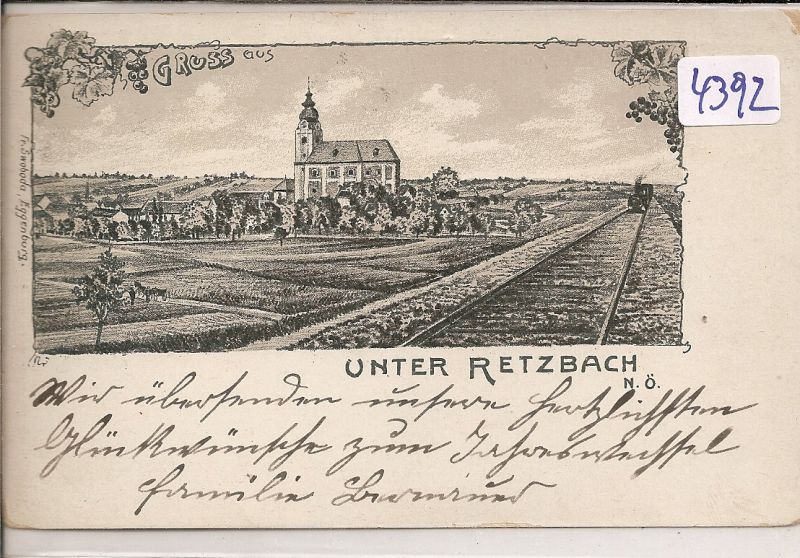 GRUSS AUS
4392
Fr. Swoboda, Eggenburg.
UNTER RETZBACH
N. Ö.
Wir übersenden unsere herzlichsten
Glückwünsche zum Jahreswechsel
Familie